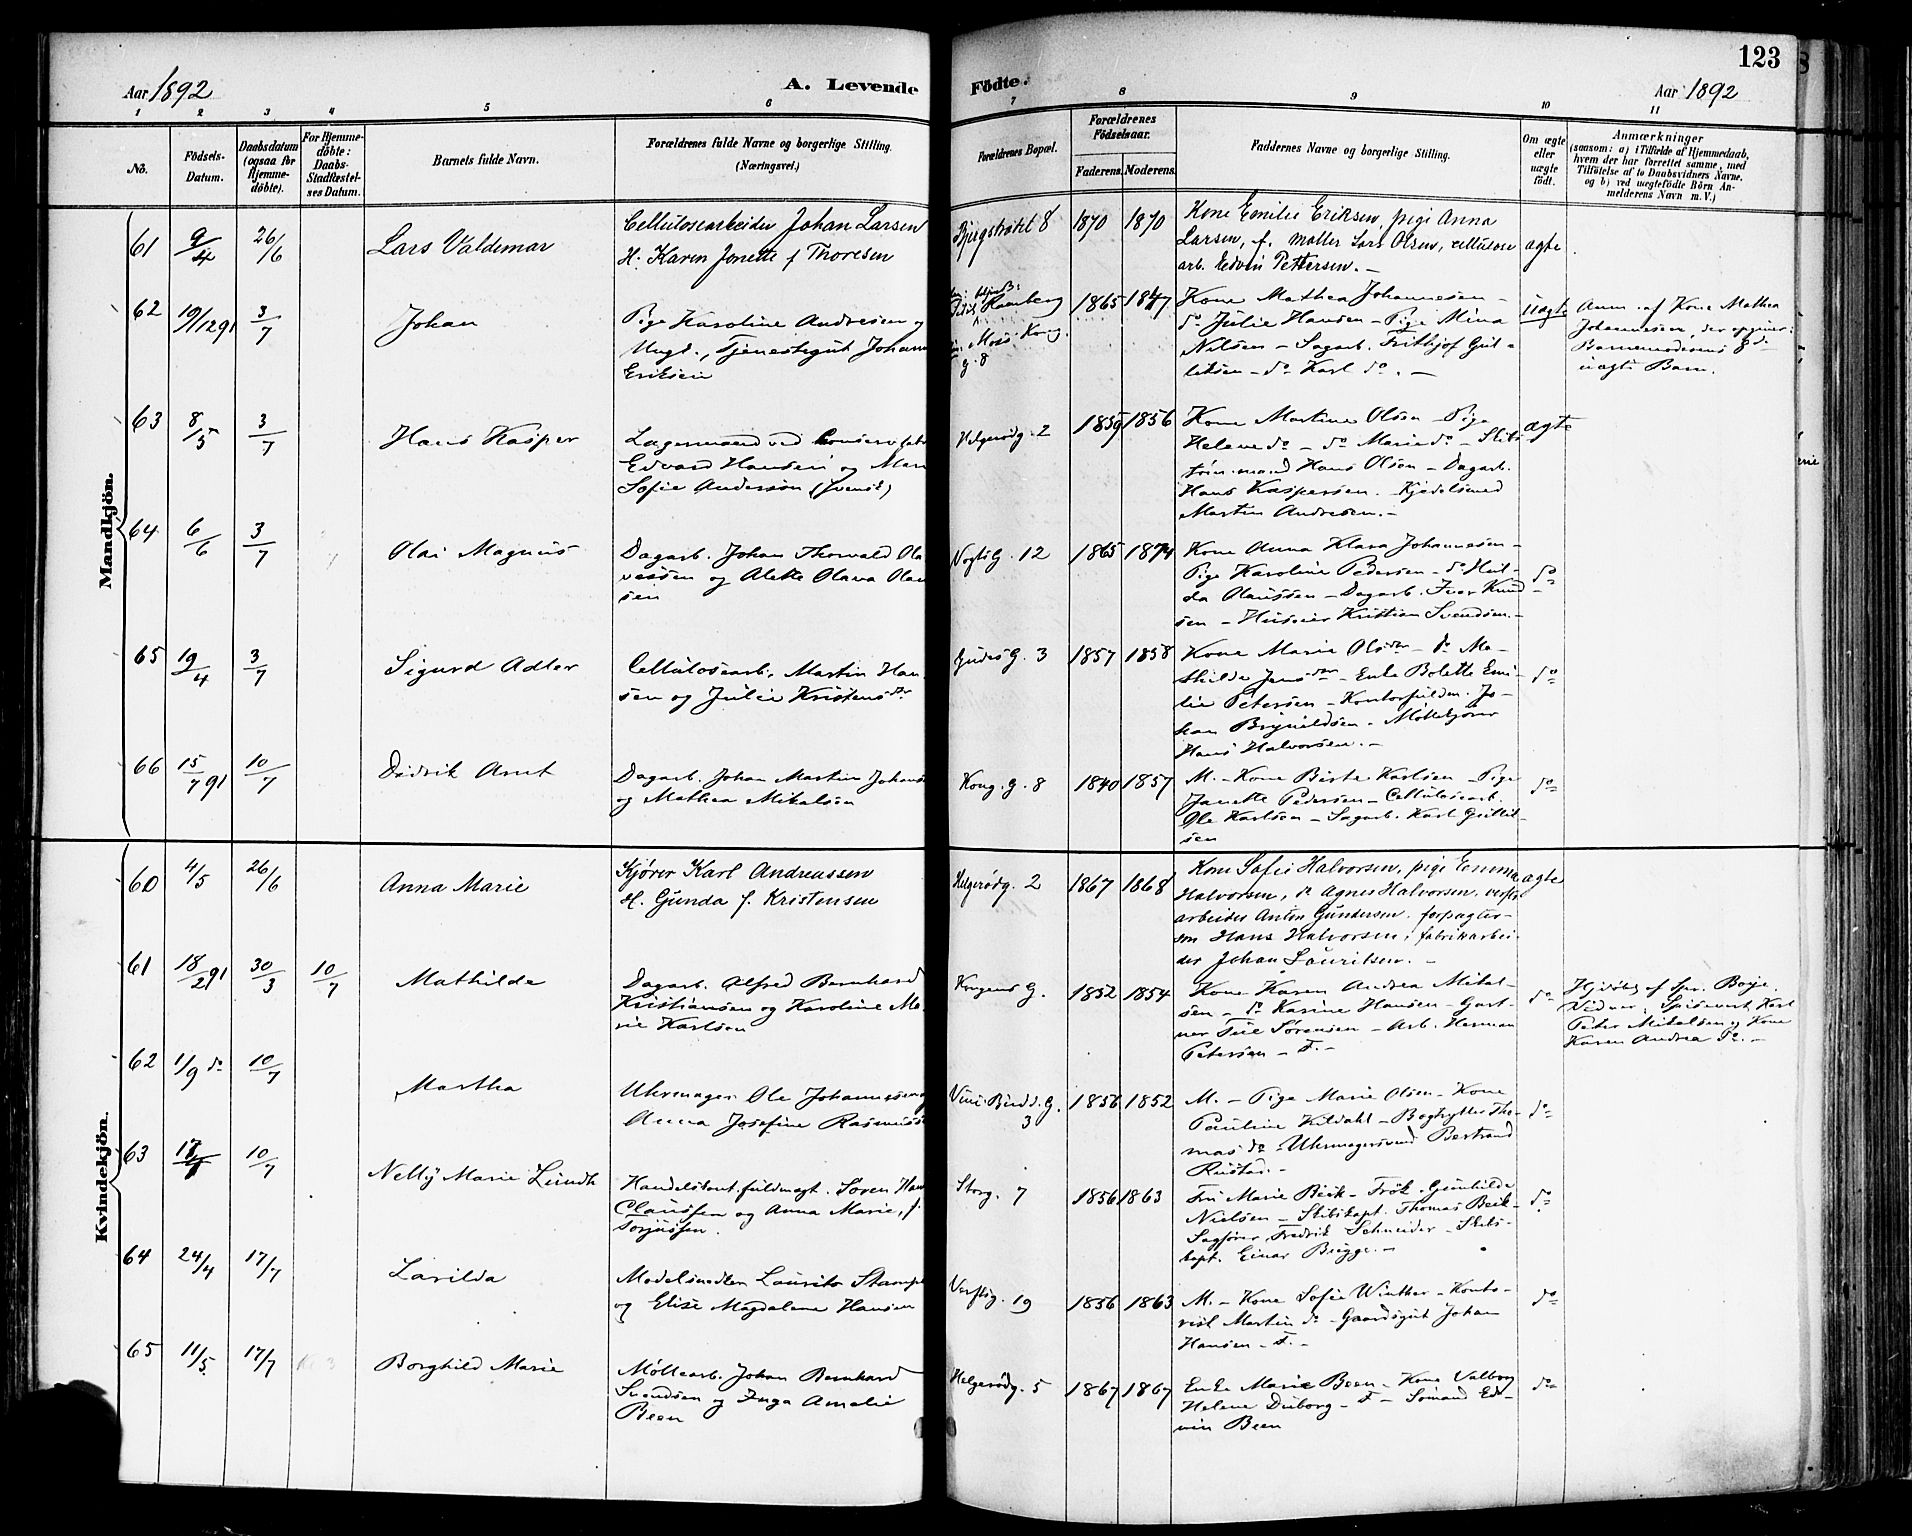 123
Aar 1892 A. Levende Födte. Aar 1892
1 2 3 4 5 6 7 8 9 10 11
No. Födsels-Datum. Daabsdatum (ogsaa for Hjemme-döbte). For Hjemme-döbte: Daabs-Stadfæstel-ses Datum. Barnets fulde Navn. Forældrenes fulde Navne og borgerlige Stilling. (Næringsvei.) Forældrenes Bopæl. Forældrenes Födselsaar. Faderens. Moderens. Faddernes Navne og borgerlige Stilling. Om ægte eller uægte födt. Anmærkninger
(saasom: a) i Tilfælde af Hjemmedaab,
hvem der har forrettet samme, med
Tilföielse af to Daabsvidners Navne.
og b) ved uægtefödte Börn An-
melderens Navn m.V.)
Mandkjön.
61 9/4 26/6 Lars Valdemar Cellulosearbeider Johan Larsen
H. Karen Jonette f Thoresen
8 1870 1870
Kone Emilie Eriksen, pige Anna
Larsen, f. møller Lars Olsen, cellulose
arb. Edvin Pettersen. –
ægte
62 19/12 91 3/7 Johan Pige Karoline Andresen og
Ungk., Tjenestegut Johan
Eriksen
Moss Kong.
g. 8
1865 1847
Kone Mathea Johannesen –
do Julie Hansen – Pige Mina
Nilsen – Sagarb. Frithjof Gul-
liksen – do Karl do. –
uægte
Anm. af Kone Mathea
Johannesen, der opgiver:
Barnemoderens
uægte Barn.
63 8/5 3/7 Hans Kasper Lagermand ved
Edvard Hansen og
Sofie Anderson (svensk)
Helgerødg. 2 1859 1856
Kone Martine Olsen – Pige
Helene do – do Marie do – Skibs
tøm.mand Hans Olsen – Dagarb.
Hans Kaspersen. Kjedelsmed
Martin Andresen. –
ægte
64 6/6 3/7 Olai Magnus Dagarb. Johan Thorvald Ola
vesen og Alette Olava Olau
sen
Vogts G. 12 1865 1874
Kone Anna Klara Johannesen –
Pige Karoline Pedersen – do Hul-
da Olaussen – Dagarb. Iver Knud
sen – Huseier Kristian Svendsen. –
do
65 19/4 3/7 Sigurd Adler Cellulosearb. Martin Han
sen og Julie Kristensdtr
Gudes G. 3 1857 1858
Kone Marie Olsdtr – do Ma-
thilde Jensdtr – Enke Bolette Emi-
lie Petersen – Kontorfuldm. Jo-
han Brynildsen – Møllekjører
Hans Halvorsen. –
do
66 15/7 91 10/7 Didrik Arnt Dagarb. Johan Martin Johans
og Mathea Mikalsen
Kong. G. 8 1840 1857
M. – Kone Birte Karlsen – Pige
Janette Pedersen – Cellulosearb.
Ole Karlsen – Sagarb. Karl Gullik-
sen
do
Kvindekjön.
60 4/5 26/6 Anna Marie Kjører Karl Andreassen
H. Gunda f. Kristensen
Helgerødg. 2 1867 1868
Kone Sofie Halvorsen, pige Emma
Halvorsen, do Agnes Halvorsen, verfts
arbeider Anton Gundersen, forpagter-
søn Hans Halvorsen, fabrikarbei-
der Johan Lauritsen. –
ægte
61 18/2 91 30/3 10/7 Mathilde Dagarb. Alfred Bernhard
Kristiansen og Karoline Ma
rie Karlsen
Kongens G. 1852 1854
Kone Karen Andrea Mikal-
sen – do Karine Hansen – Gart-
ner Sørensen – Arb. Herman
Petersen – F. –
do
Hjdøbt af Spr. Boije.
Vidner: Spisevært Karl
Peter Mikalsen og Kone
Karen Andrea do. –
62 1/9 do 10/7 Martha Uhrmager Ole Johannesen og
Anna Josefine Rasmuss
G. 3 1856 1852
M. – Pige Marie Olsen – Kone
Pauline Kildahl – Bogtrykker Tho-
mas do – Uhrmagersvend Bertrand
Rustad. –
do
63 10/7 Nelly Marie Lundh Handelskont.fuldmægt. Søren Han
Claussen og Anna Marie, f.
Torjussen.
Storg. 7 1856 1863
Fru Marie Beck – Frøk. Gunhilde
Nielsen – Skibskapt. Thomas Beck –
Sagfører Fredrik Schneider – Skibs-
kapt. Einar Brigge. –
do
64 24/4 17/7 Larilda Modelsnedker Laurits Stamp
og Elise Magdalene Hansen
Verftsg. 19 1856 1863
M. – Kone Sofie Winther – Konto-
rist Martin do – Gaardsgut Johan
Hansen – F. –
do
65 11/5 17/7 Borghild Marie Møllearb. Johan Bernhard
Svendsen og Inga Amalie
Been
Helgerødg. 5 1867 1867
Enke Marie Been – Kone Valborg
Helene Duborg – F – Sømand Ed-
vin Been
do